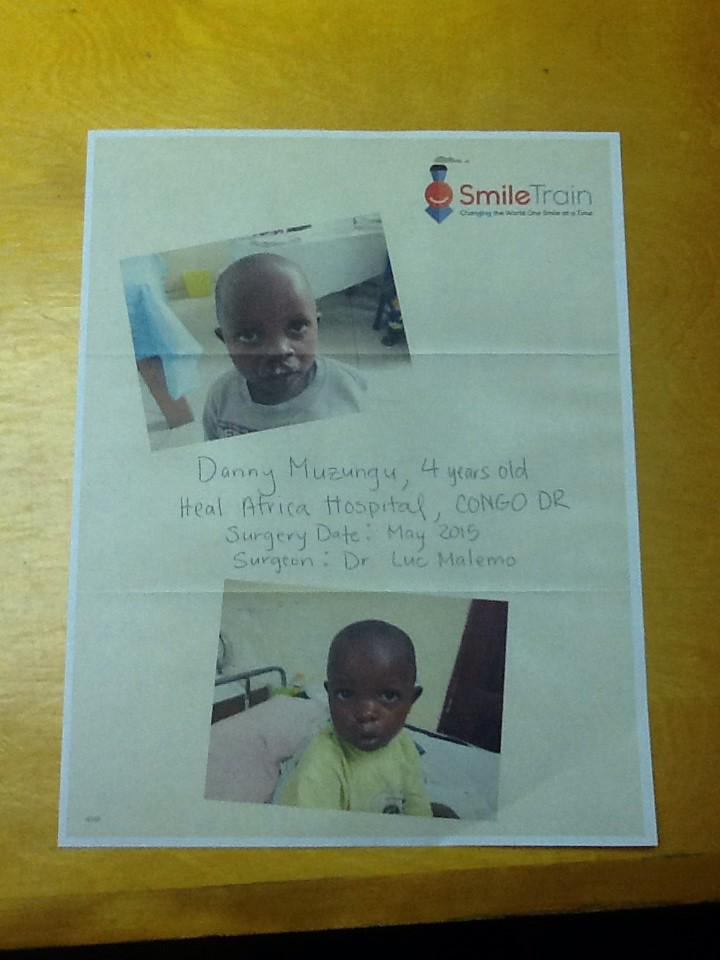 SmileTrain
Changing the World One Smile at a Time
Danny Muzungu, 4 years old
Heal Africa Hospital, CONGO DR
Surgery Date: May 2015
Surgeon: Dr Luc Malemo